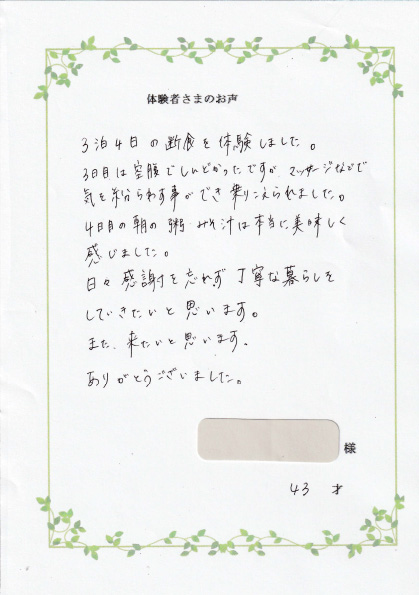 体験者さまのお声
3泊4日の断食を体験しました。
3日目は空腹でしんどかったですが、マッサージなどで
気を紛らわす事ができ乗りこえられました。
4日目の朝の粥・みそ汁は本当に美味しく
感じました。
日々感謝を忘れず丁寧な暮らしを
していきたいと思います。
また、来たいと思います。
ありがとうございました。
様
43 才